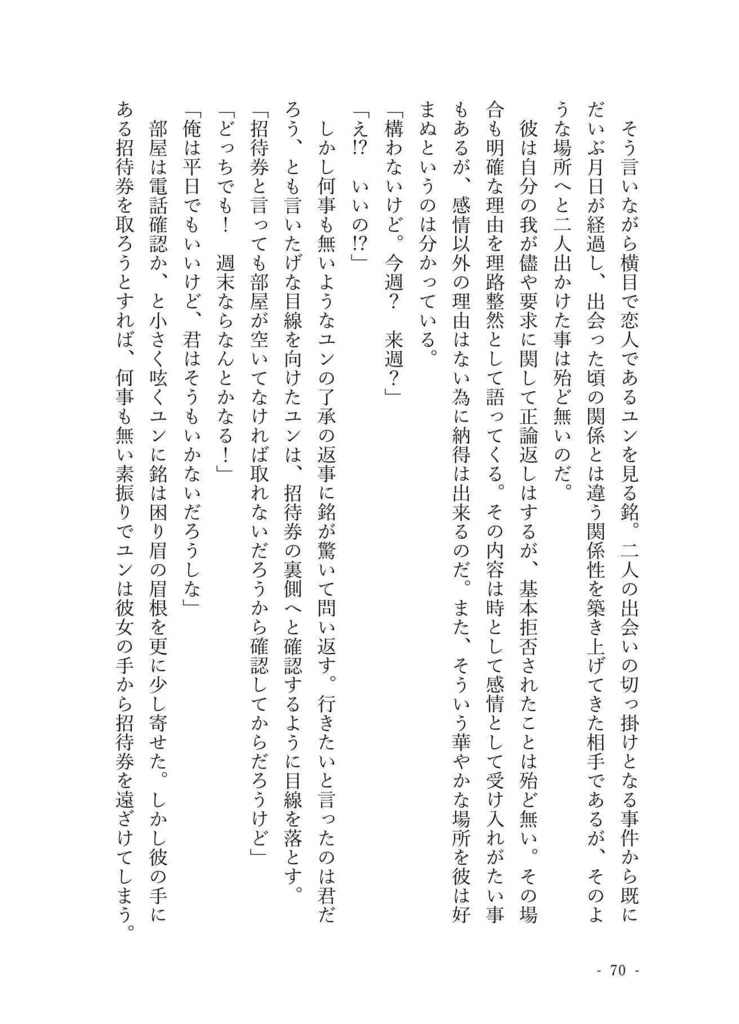 そう言いながら横目で恋人であるユンを見る銘。二人の出会いの切っ掛けとなる事件から既に
だいぶ月日が経過し、出会った頃の関係とは違う関係性を築き上げてきた相手であるが、そのよ
うな場所へと二人出かけた事は殆ど無いのだ。
　彼は自分の我が儘や要求に関して正論返しはするが、基本拒否されたことは殆ど無い。その場
合も明確な理由を理路整然として語ってくる。その内容は時として感情として受け入れがたい事
もあるが、感情以外の理由はない為に納得は出来るのだ。また、そういう華やかな場所を彼は好
まぬというのは分かっている。
「構わないけど。今週？　来週？」
「え!?　いいの!?」
　しかし何事も無いようなユンの了承の返事に銘が驚いて問い返す。行きたいと言ったのは君だ
ろう、とも言いたげな目線を向けたユンは、招待券の裏側へと確認するように目線を落とす。
「招待券と言っても部屋が空いてなければ取れないだろうから確認してからだろうけど」
「どっちでも！　週末ならなんとかなる！」
「俺は平日でもいいけど、君はそうもいかないだろうしな」
　部屋は電話確認か、と小さく呟くユンに銘は困り眉の眉根を更に少し寄せた。しかし彼の手に
ある招待券を取ろうとすれば、何事も無い素振りでユンは彼女の手から招待券を遠ざけてしまう。
- 70 -